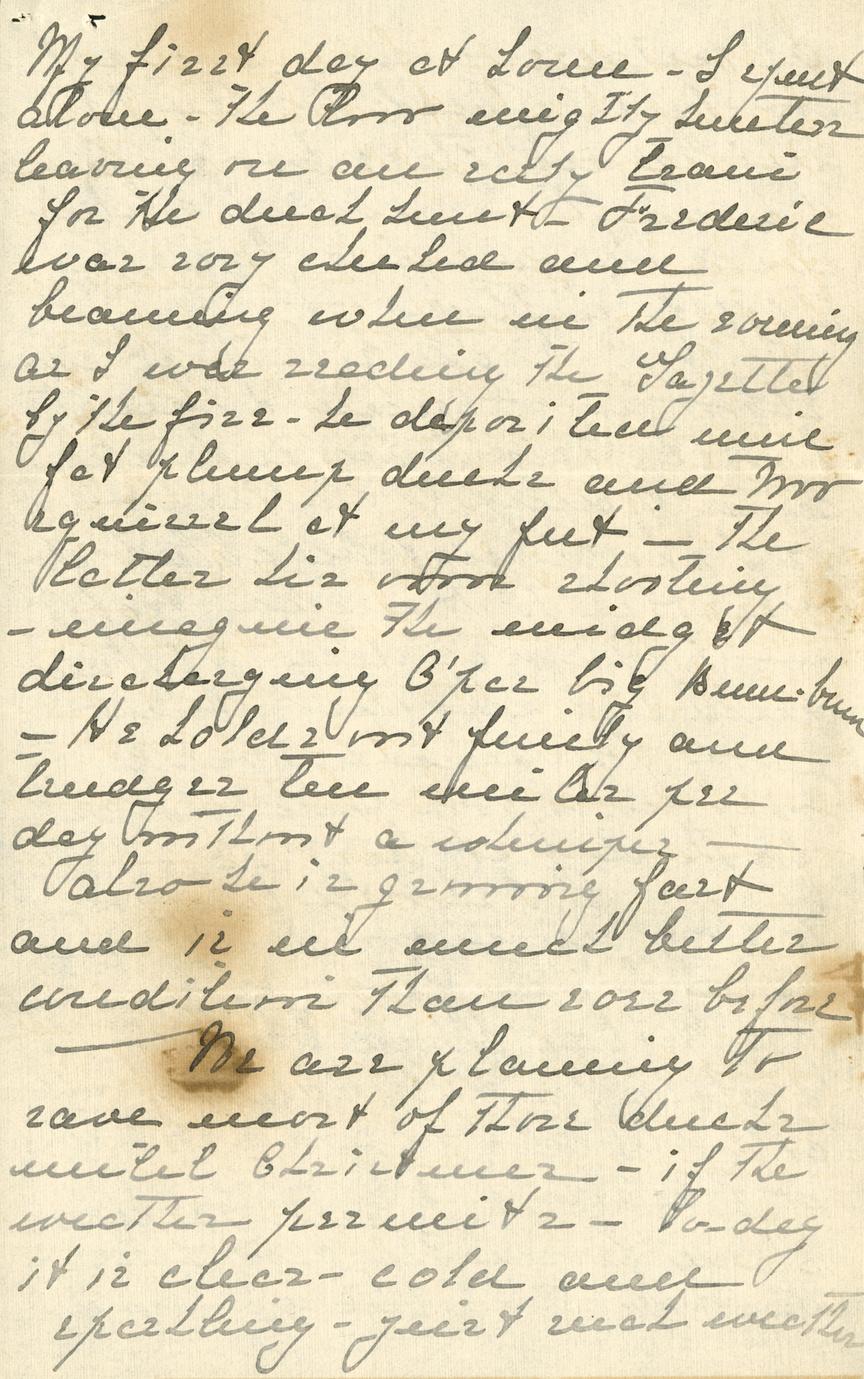 My first day at home - I spent
alone - The two mighty hunters
leaving on an early train
for the duck hunt - Frederic
was very elated and
beaming when in the evening
as I was reading the Gazette
by the fire - he deposited nine
fat plump ducks and two
squirrel at my feet — The
latter his own shooting
- imagine the midget
discharging B'pas big Bum-bum
— He holds out finely and
trudges ten miles per
day without a whimper —
also he is growing fast
and is in much better
condition than ever before
— We are planning to
save most of those ducks
until Christmas - if the
weather permits - To-day
it is clear - cold and
sparkling - just such weather